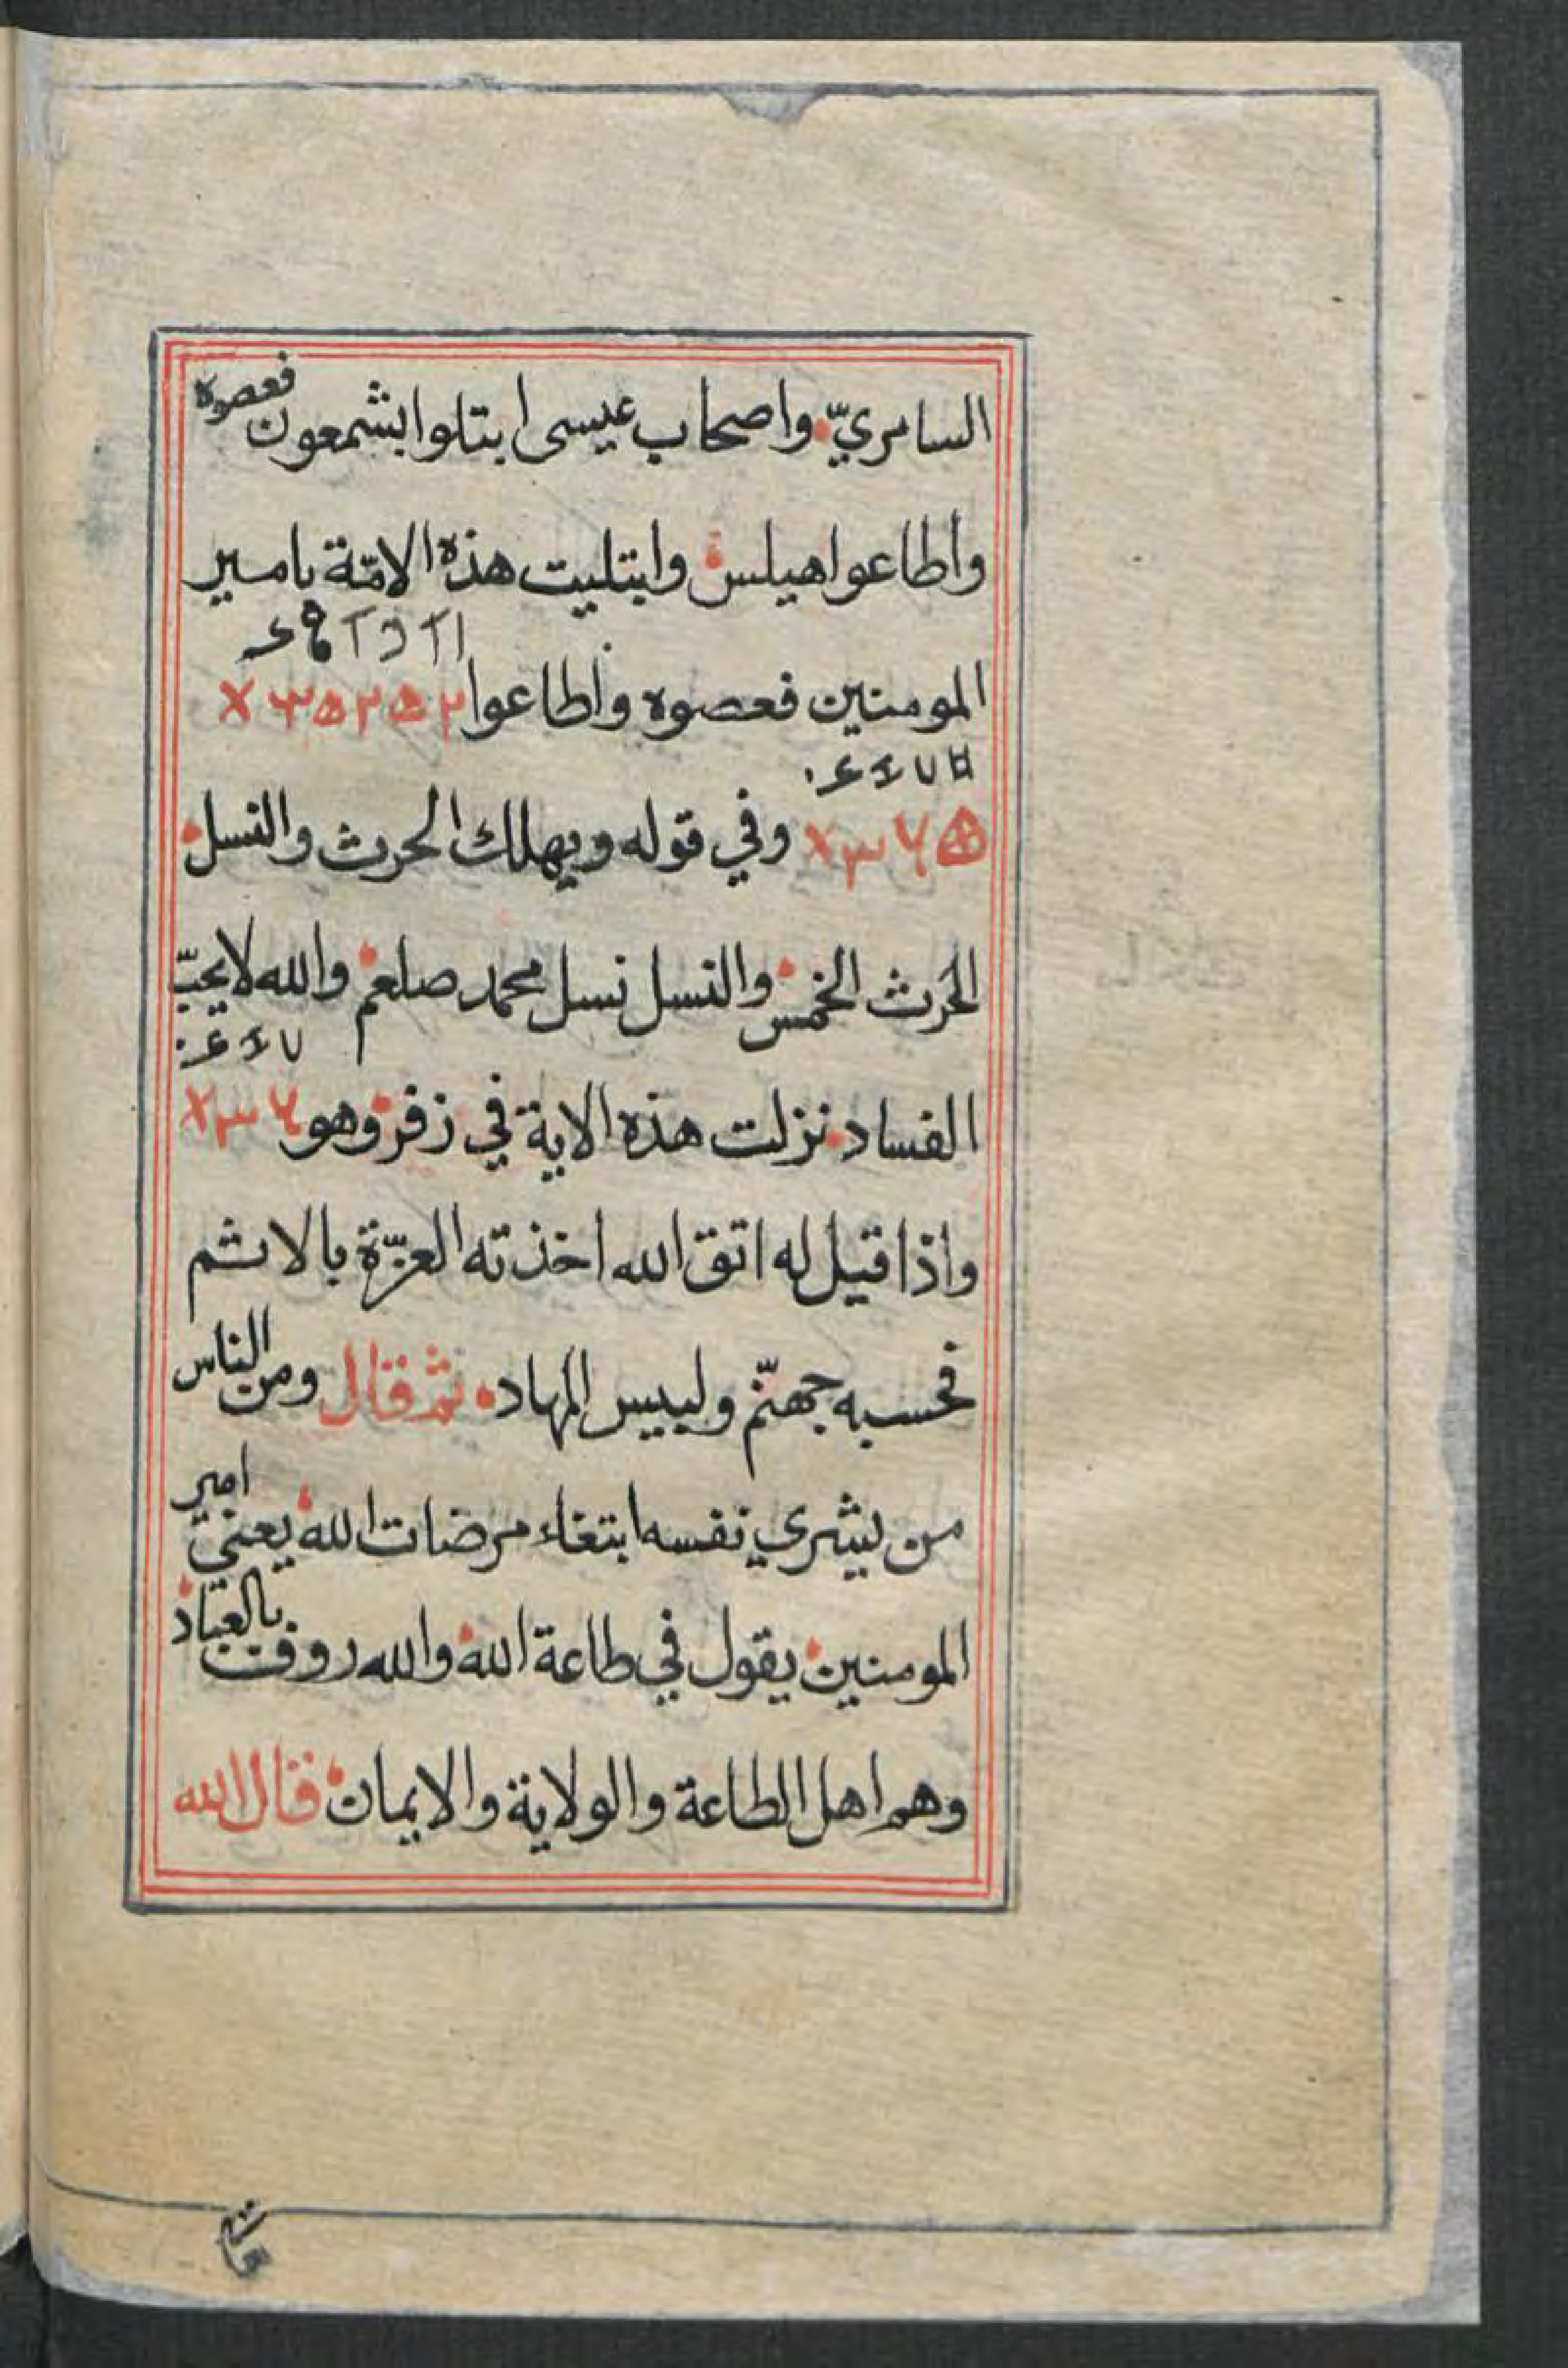 السامريّ واصحاب عيسى ابتلوا بشمعون فعصوه
واطاعوا هيلس وابتليت هذه الامّة بامير
المومنين فعصوه واطاعوا
وفي قوله ويهلك الحرث والنسل
الحرث الخمس والنسل نسل محمد صلعم والله لا يحبّ
الفساد نزلت هذه الاية في زفر وهو
واذا قيل له اتق الله اخذته العزّة بالاثم
فحسبه جهنّم ولبيس المهاد ثم قال ومن الناس
من يشري نفسه ابتغاء مرضات الله يعني امير
المومنين يقول في طاعة الله والله رووف بالعباد
وهم اهل الطاعة والولاية والايمان قال الله